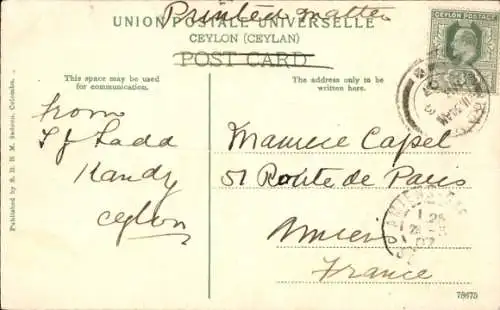 Printed matter
UNION POSTALE UNIVERSELLE
CEYLON (CEYLAN)
POST CARD
CEYLON POSTAGE
This space may be used
for communication.
The address only to be
written here.
from
Ladd
Kandy
Ceylon
Maurice Capel
51 Route de Paris
Amiens
France
AMIENS
Published by
Colombo.